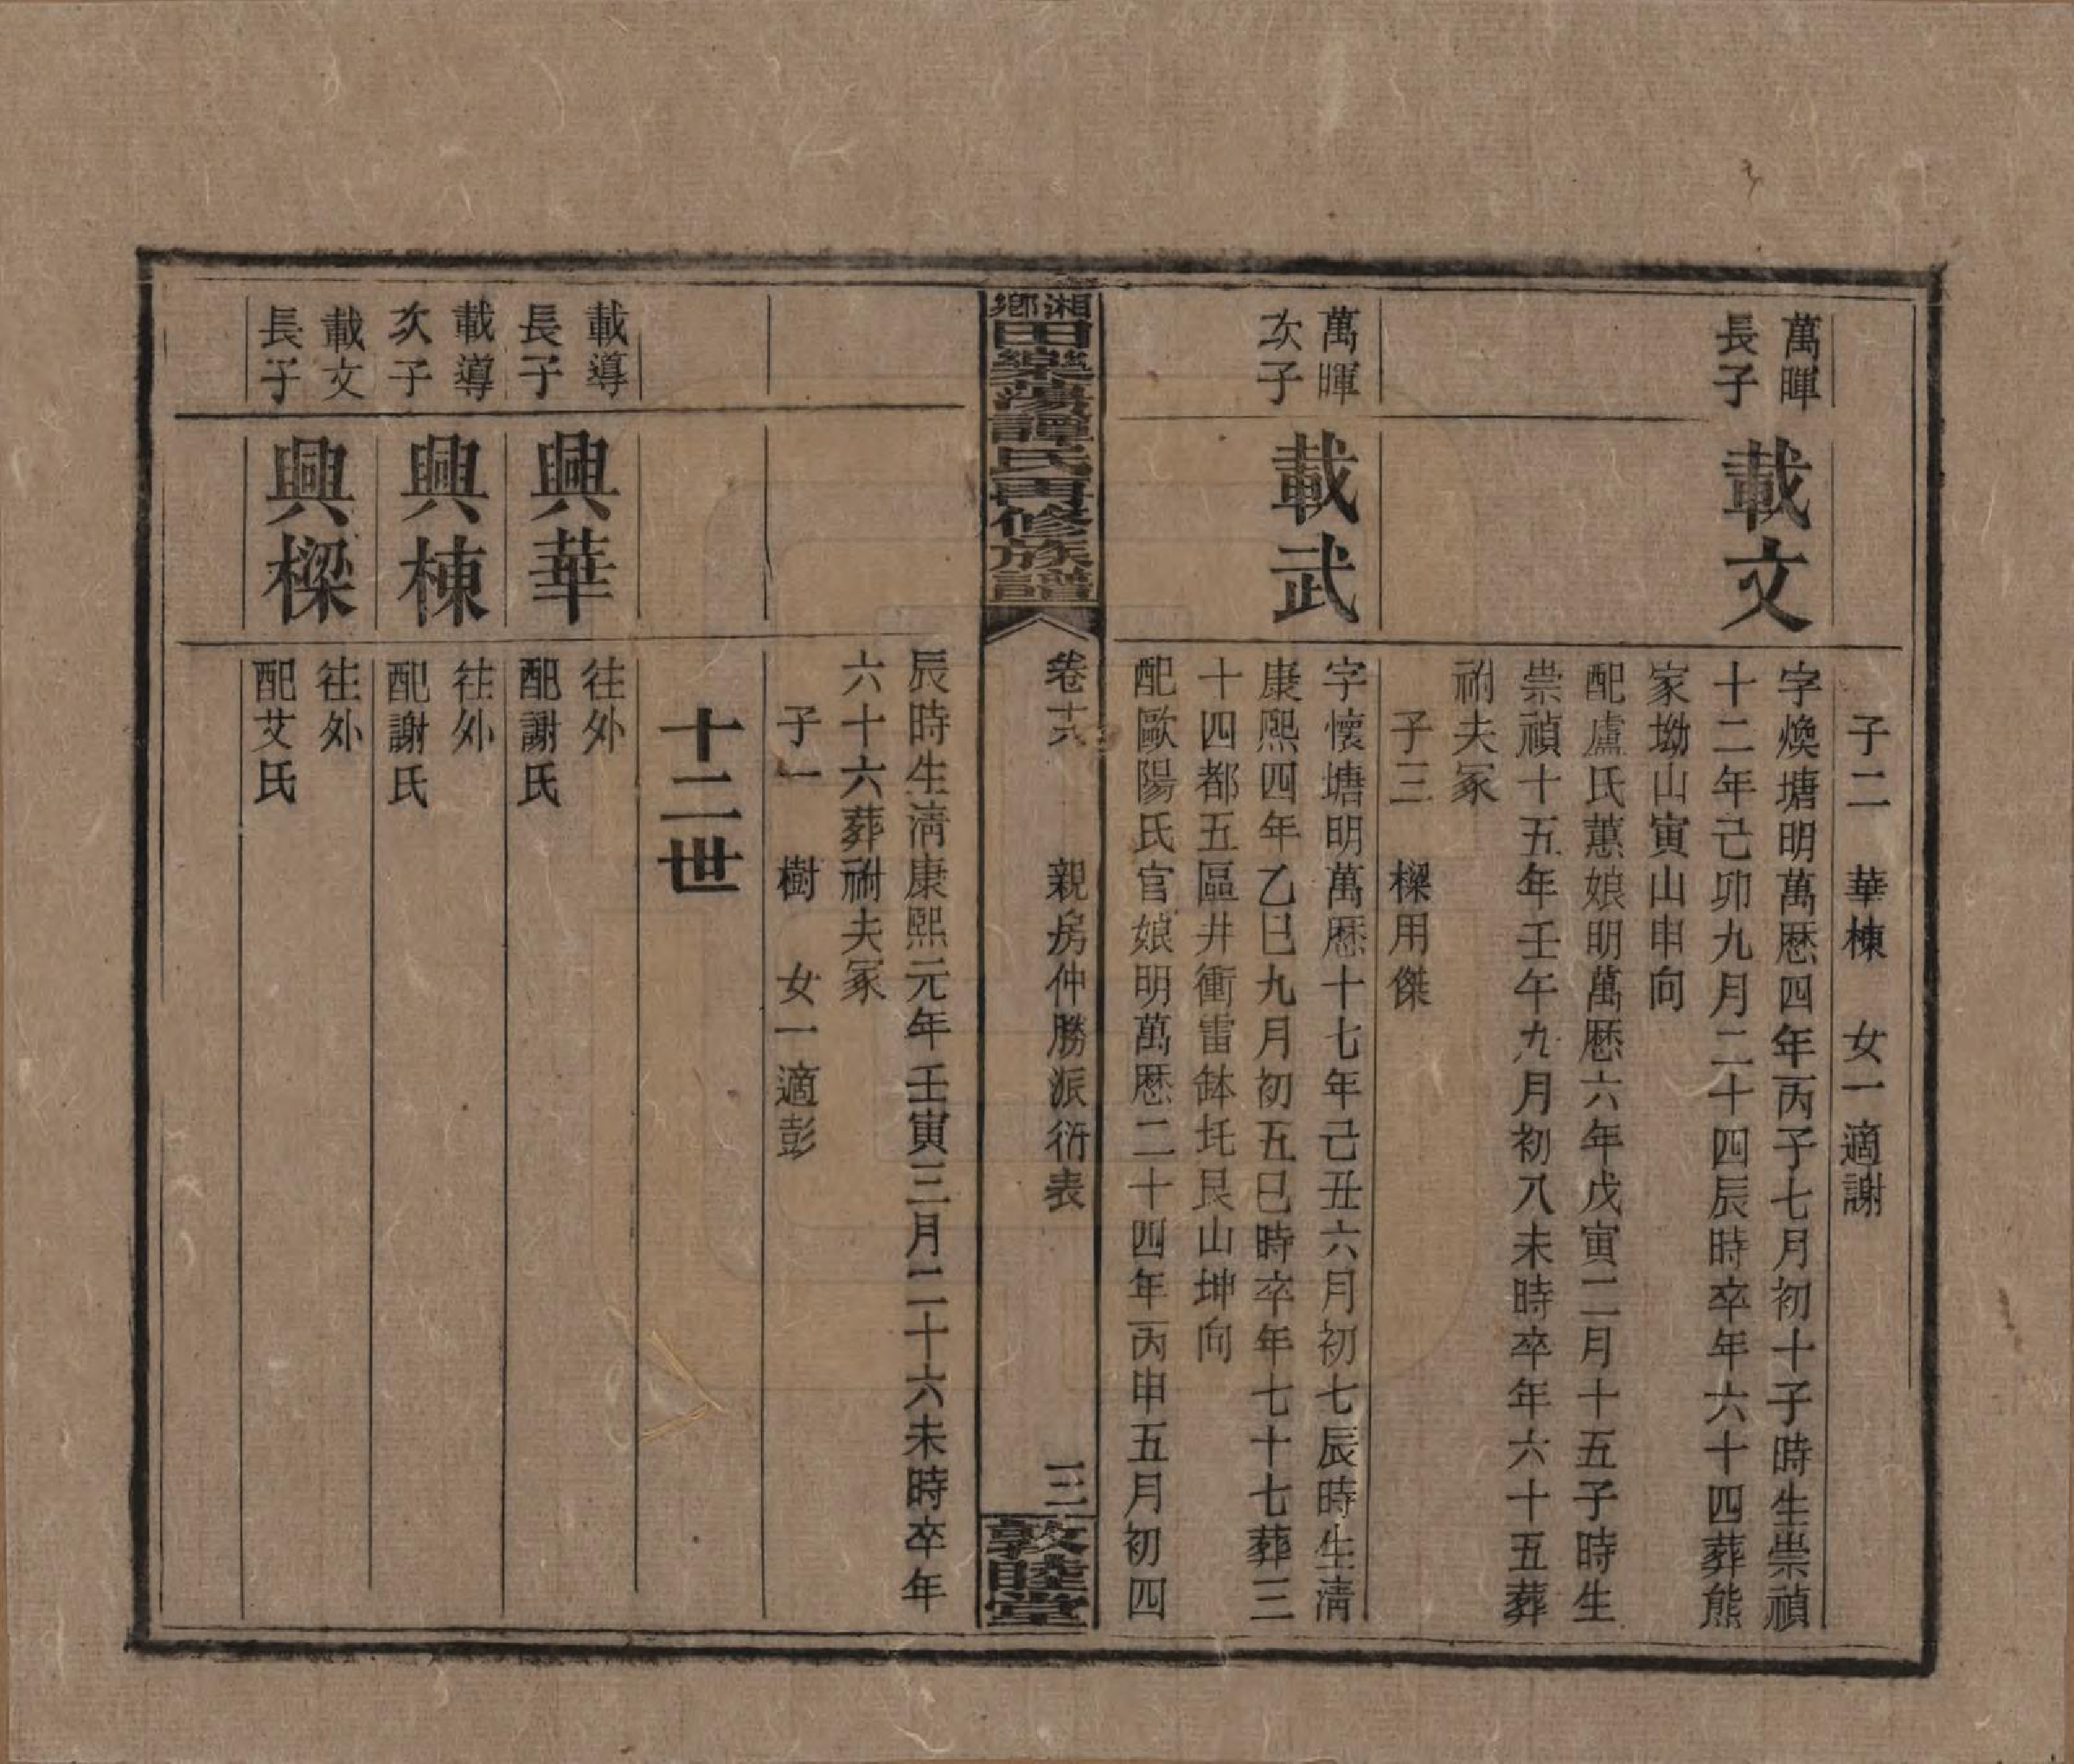 子二　華棟　女一適謝
萬暉
長子
載文
字煥塘明萬厯四年丙子七月初十子時生崇禎
十二年己卯九月二十四辰時卒年六十四葬熊
家坳山寅山申向
配盧氏蕙娘明萬厯六年戊寅二月十五子時生
崇禎十五年壬午九月初八未時卒年六十五葬
祔夫冢
子三　樑用傑
萬暉
次子
載武
字懷塘明萬厯十七年己丑六月初七辰時生淸
康熙四年乙巳九月初五巳時卒年七十七葬三
十四都五區井衝雷缽圫艮山坤向
配歐陽氏官娘明萬厯二十四年丙申五月初四
湘鄉田樂蕩譚氏四修族譜
卷十六　親房仲勝派衍表　三
敦睦堂
辰時生淸康熙元年壬寅三月二十六未時卒年
六十六葬祔夫冢
子一　樹　女一適彭
十二世
載導
長子
興華
往外
配謝氏
載導
次子
興棟
往外
配謝氏
載文
長子
興樑
往外
配艾氏